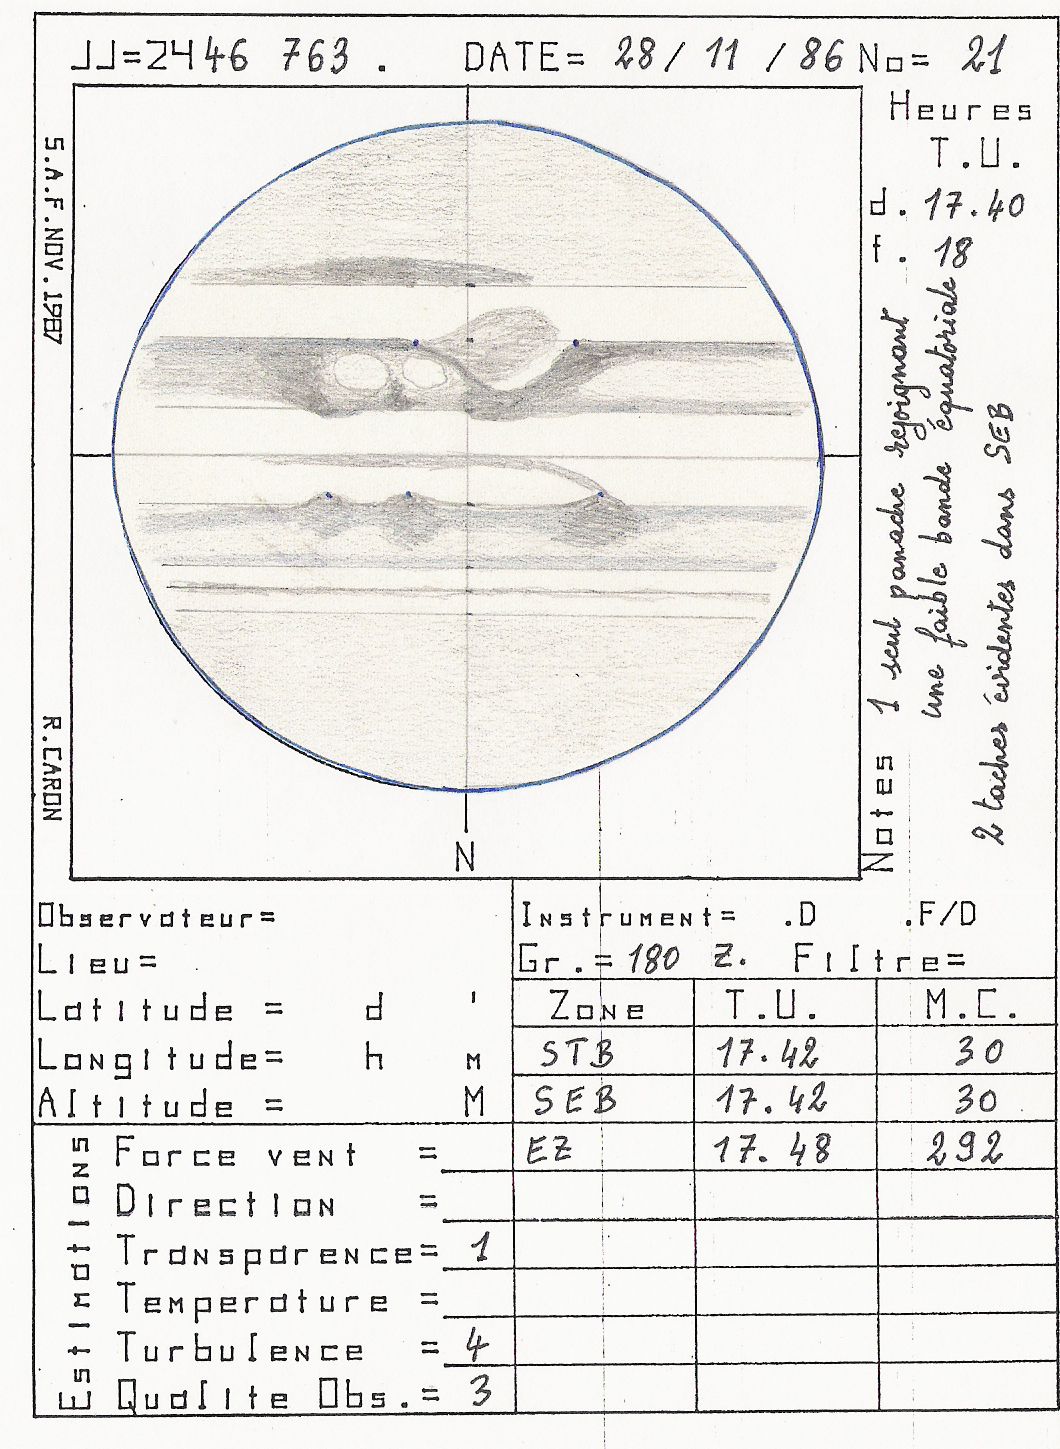 JJ=2446 763. DATE= 28/ 11 / 86 No= 21
Heures
T.U.
d. 17.40
f. 18
S.A.F.NOV.1987
R.CARON
N
Notes 1 seul panache rejoignant
une faible bande équatoriale
2 taches évidentes dans SEB
Observateur=
Lieu=
Latitude = d '
Longitude= h M
Altitude = M
Instrument= .D .F/D
Gr.= 180 Z. Filtre=
Zone T.U. M.C.
STB 17.42 30
SEB 17.42 30
EZ 17.48 292
Estimations
Force vent =
Direction =
Transparence= 1
Temperature =
Turbulence = 4
Qualite Obs.= 3